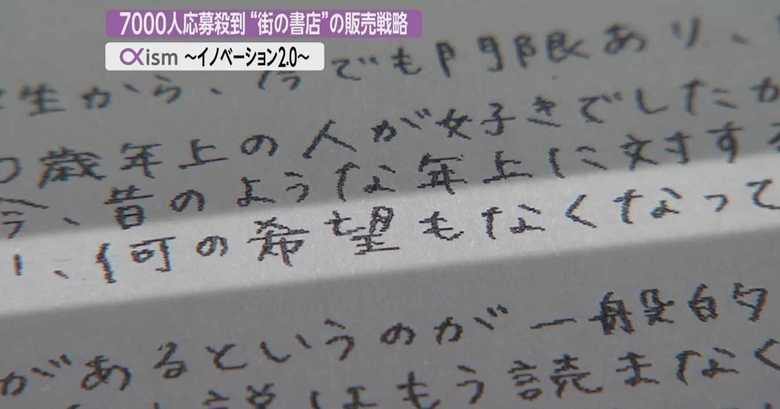 7000人応募殺到 “街の書店”の販売戦略
αism ～イノベーション2.0～
生から、今でも門限あり、
歳年上の人が好きでしたか
今、昔のような年上に対する
、何の希望もなくなって
があるというのが一般的
はもう読まなく